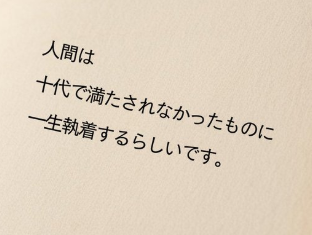 人間は
十代で満たされなかったものに
一生執着するらしいです。